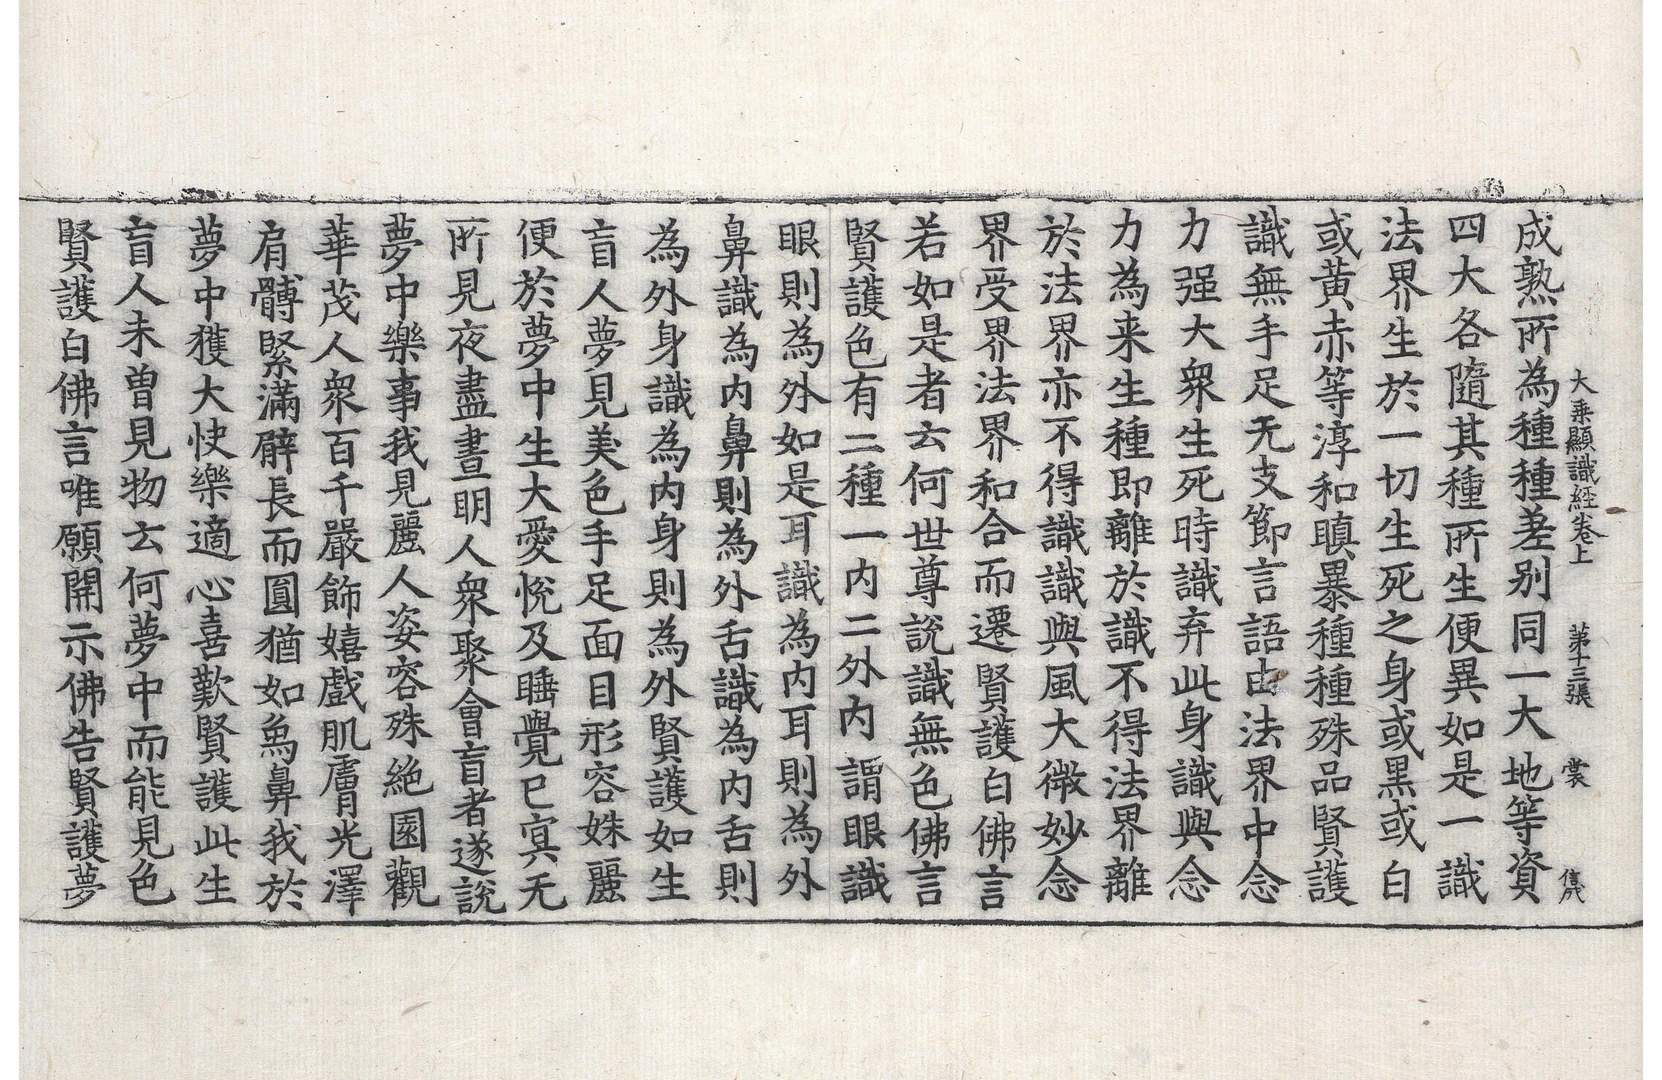 大乗顯識經卷上　第十三張　裳
成熟所為種種差别同一大地等資
四大各隨其種所生便異如是一識
法界生於一切生死之身或黑或白
或黄赤等淳和瞋暴種種殊品賢護
識無手足无支節言語由法界中念
力强大衆生死時識弃此身識與念
力為来生種即離於識不得法界離
於法界亦不得識識與風大微妙念
界受界法界和合而遷賢護白佛言
若如是者云何世尊說識無色佛言
賢護色有二種一内二外内謂眼識
眼則為外如是耳識為内耳則為外
鼻識為内鼻則為外舌識為内舌則
為外身識為内身則為外賢護如生
盲人夢見美色手足面目形容姝麗
便於夢中生大愛悅及睡覺已㝠无
所見夜盡晝明人衆聚會盲者遂說
夢中樂事我見麗人姿容殊絶園觀
華茂人衆百千嚴飾嬉戲肌膚光澤
肩髆緊滿臂長而圓猶如象鼻我於
夢中獲大快樂適心喜歎賢護此生
盲人未曽見物云何夢中而能見色
賢護白佛言唯願開示佛告賢護夢